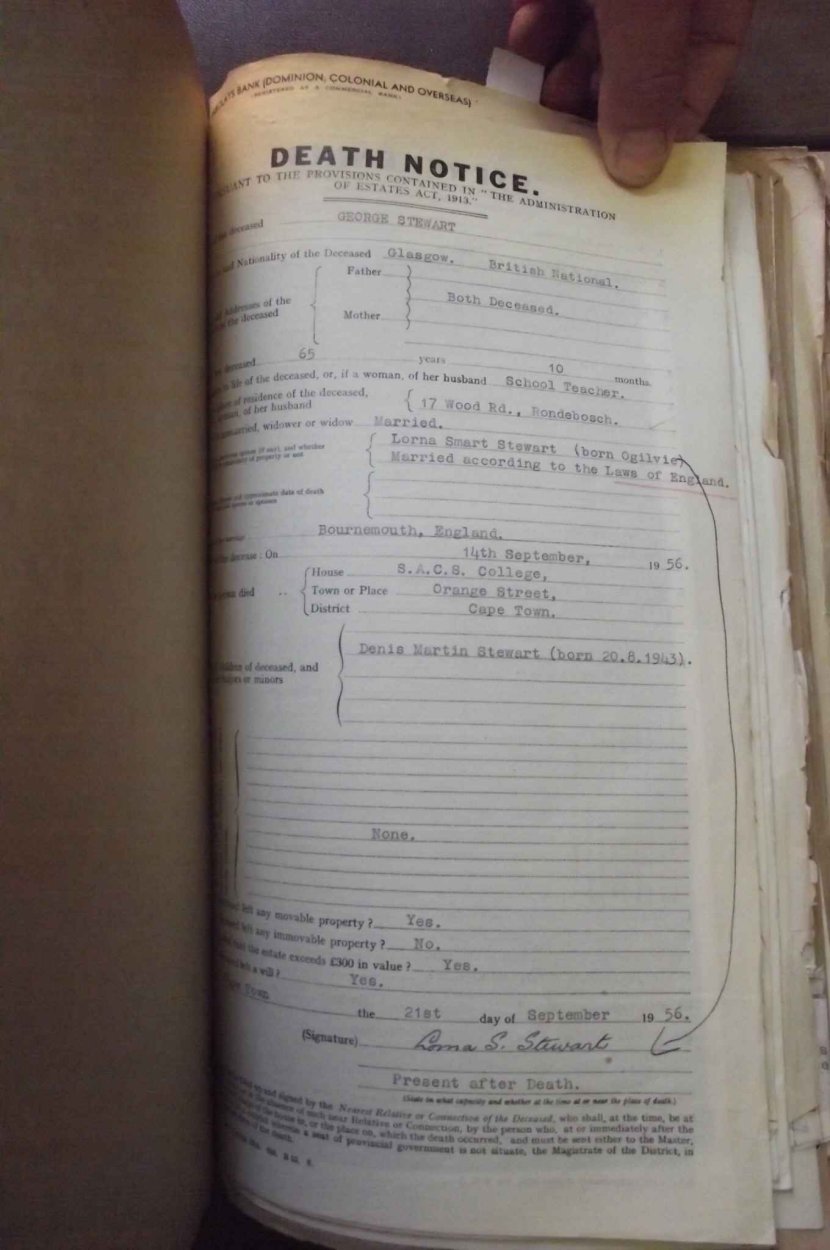 BANK (DOMINION, COLONIAL AND OVERSEAS)
REGISTERED AS A COMMERCIAL BANK
DEATH NOTICE.
TO THE PROVISIONS CONTAINED IN "THE ADMINISTRATION
OF ESTATES ACT, 1913."
deceased GEORGE STEWART
and Nationality of the Deceased Glasgow. British National.
Father
Addresses of the Both Deceased.
the deceased Mother
deceased 65 years 10 months.
life of the deceased, or, if a woman, of her husband School Teacher.
of residence of the deceased,
of her husband 17 Wood Rd., Rondebosch.
widower or widow Married.
Lorna Smart Stewart (born Ogilvie)
of property or not Married according to the Laws of England.
approximate date of death
Bournemouth, England.
decease: On 14th September, 1956.
House S.A.C.S. College,
died .. Town or Place Orange Street,
District Cape Town.
Denis Martin Stewart (born 20.8.1943).
of deceased, and
or minors
None.
left any movable property? Yes.
left any immovable property? No.
the estate exceeds £300 in value? Yes.
left a will? Yes.
Town
the 21st day of September 1956.
(Signature) Lorna S. Stewart
Present after Death.
(State in what capacity and whether at the time at or near the place of death.)
up and signed by the Nearest Relative or Connection of the Deceased, who shall, at the time, be at
the absence of such near Relative or Connection, by the person who, at or immediately after the
of the house in, or the place on, which the death occurred, and must be sent either to the Master,
wherein a seat of provincial government is not situate, the Magistrate of the District, in
of the death.